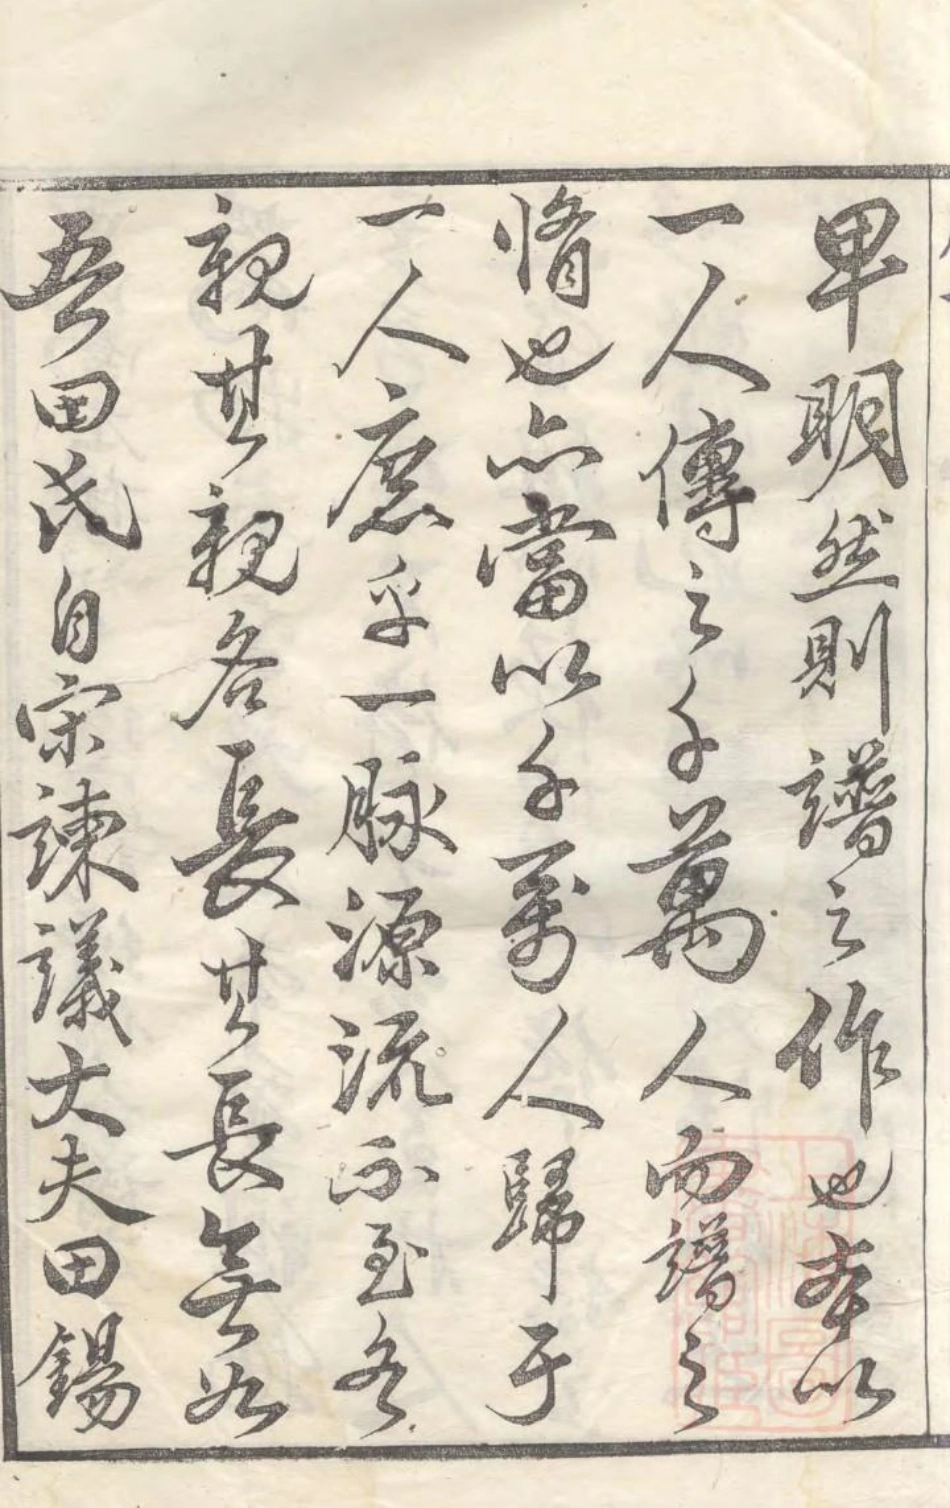 卑明然則譜之作也本以
一人傳之千萬人而譜之
脩也亦當以千萬人歸于
一人庶乎一脉源流不至各
親其親各長其長無如
吾田氏自宋諫議大夫田錫